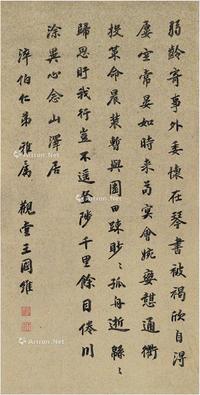 弱齡寄事外委懷在琴書被褐欣自得
屢空常晏如時來苟冥會婉孌憩通衢
投策命晨裝暫與園田疎眇〻孤舟逝緜〻
歸思紆我行豈不遥登陟千里餘目倦川
塗異心念山澤居
淬伯仁弟雅屬 觀堂王國維